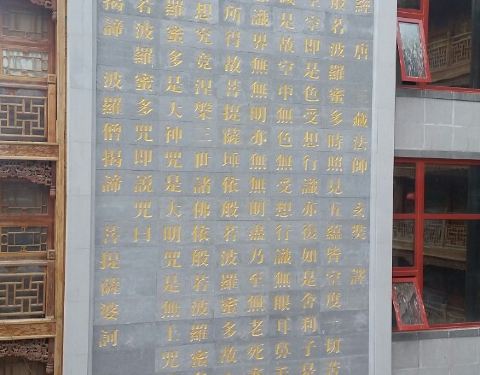 唐 三藏法師 玄奘 譯
般若波羅蜜多時照見五蘊皆空度一切苦
空空即是色受想行識亦復如是舍利子是
滅是故空中無色無受想行識無眼耳鼻
識界無無明亦無無明盡乃至無老死
所得故菩提薩埵依般若波羅蜜多故
想究竟涅槃三世諸佛依般若波羅蜜
羅蜜多是大神咒是大明咒是無上咒
若波羅蜜多咒即說咒曰
揭諦 波羅僧揭諦 菩提薩婆訶